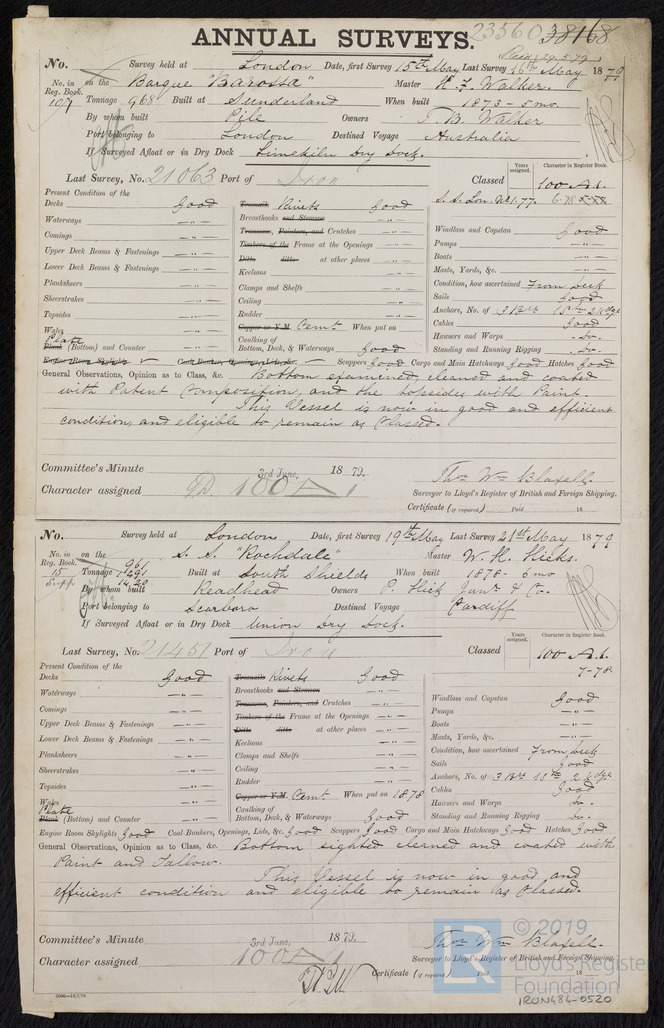 23560 38168
ANNUAL SURVEYS.
Recd 29.5.79
No. Survey held at London Date, first Survey 15th May Last Survey 16th May 1879
No. in Reg. Book. on the Barque "Barossa" Master H. F. Walker.
197 Tonnage 968 Built at Sunderland When built 1873 - 5 mo
By whom built Pile Owners T. B. Walker
Port belonging to London Destined Voyage Australia
If Surveyed Afloat or in Dry Dock Limekiln Dry Dock.
Last Survey, No. 21063 Port of Iron Classed Years assigned. Character in Register Book.
100 A.1.
S. S. Lon. No 1. 77. 6-78
Present Condition of the
Decks Good Treenails Rivets Good
Waterways -"- Breasthooks and Stemson -"- Windlass and Capstan Good
Comings -"- Transoms, Pointers, and Crutches -"- Pumps -"-
Upper Deck Beams & Fastenings -"- Timbers of the Frame at the Openings -"- Boats -"-
Lower Deck Beams & Fastenings -"- Ditto ditto at other places -"- Masts, Yards, &c. -"-
Planksheers -"- Keelsons -"- Condition, how ascertained From Deck
Sheerstrakes -"- Clamps and Shelfs -"- Sails Good
Topsides -"- Ceiling -"- Anchors, No. of 3 Br 1 Stm 2 Kdge
Wales -"- Rudder -"- Cables Good
Plate Plank (Bottom) and Counter -"- Copper or Y.M. Cemt When put on Hawsers and Warps Do.
Caulking of Bottom, Deck, & Waterways Good Standing and Running Rigging Do.
Engine Room Skylights Coal Bunkers, Openings, Lids, &c. Scuppers Good Cargo and Main Hatchways Good Hatches Good
General Observations, Opinion as to Class, &c. Bottom examined, cleaned and coated
with Patent Composition, and the topsides with Paint.
This Vessel is now in good and efficient
condition, and eligible to remain as Classed.
Committee's Minute 3rd June, 1879.
Character assigned 100 A 1
Thos Wm Blaxell.
Surveyor to Lloyd's Register of British and Foreign Shipping.
Certificate (if required) Paid 18
No. Survey held at London Date, first Survey 19th May Last Survey 21st May 1879
No. in Reg. Book. on the S. S. "Rochdale" Master W. H. Hicks.
15 Supp Tonnage 961 1291 1420 Built at South Shields When built 1878 - 6 mo
By whom built Readhead Owners P. Hick Junr. & Co.
Port belonging to Scarboro Destined Voyage Cardiff
If Surveyed Afloat or in Dry Dock Union Dry Dock.
Last Survey, No. 21451 Port of Iron Classed Years assigned. Character in Register Book.
100 A.1.
7-78.
Present Condition of the
Decks Good Treenails Rivets Good
Waterways -"- Breasthooks and Stemson -"- Windlass and Capstan Good
Comings -"- Transoms, Pointers, and Crutches -"- Pumps -"-
Upper Deck Beams & Fastenings -"- Timbers of the Frame at the Openings -"- Boats -"-
Lower Deck Beams & Fastenings -"- Ditto ditto at other places -"- Masts, Yards, &c. -"-
Planksheers -"- Keelsons -"- Condition, how ascertained From Deck
Sheerstrakes -"- Clamps and Shelfs -"- Sails Good
Topsides -"- Ceiling -"- Anchors, No. of 3 Br 1 Stm 2 Kdge
Wales -"- Rudder -"- Cables Good
Plate Plank (Bottom) and Counter -"- Copper or Y.M. Cemt When put on 1878 Hawsers and Warps Do.
Caulking of Bottom, Deck, & Waterways Good Standing and Running Rigging Do.
Engine Room Skylights Good Coal Bunkers, Openings, Lids, &c. Good Scuppers Good Cargo and Main Hatchways Good Hatches Good
General Observations, Opinion as to Class, &c. Bottom sighted cleaned and coated with
Paint and Tallow.
This Vessel is now in good and
efficient condition and eligible to remain as Classed.
Committee's Minute 3rd June, 1879.
Character assigned 100 A 1
Thos Wm Blaxell.
Surveyor to Lloyd's Register of British and Foreign Shipping.
Certificate (if required) Paid 18
© 2019
LR Lloyd's Register
Foundation
IRON484-0520